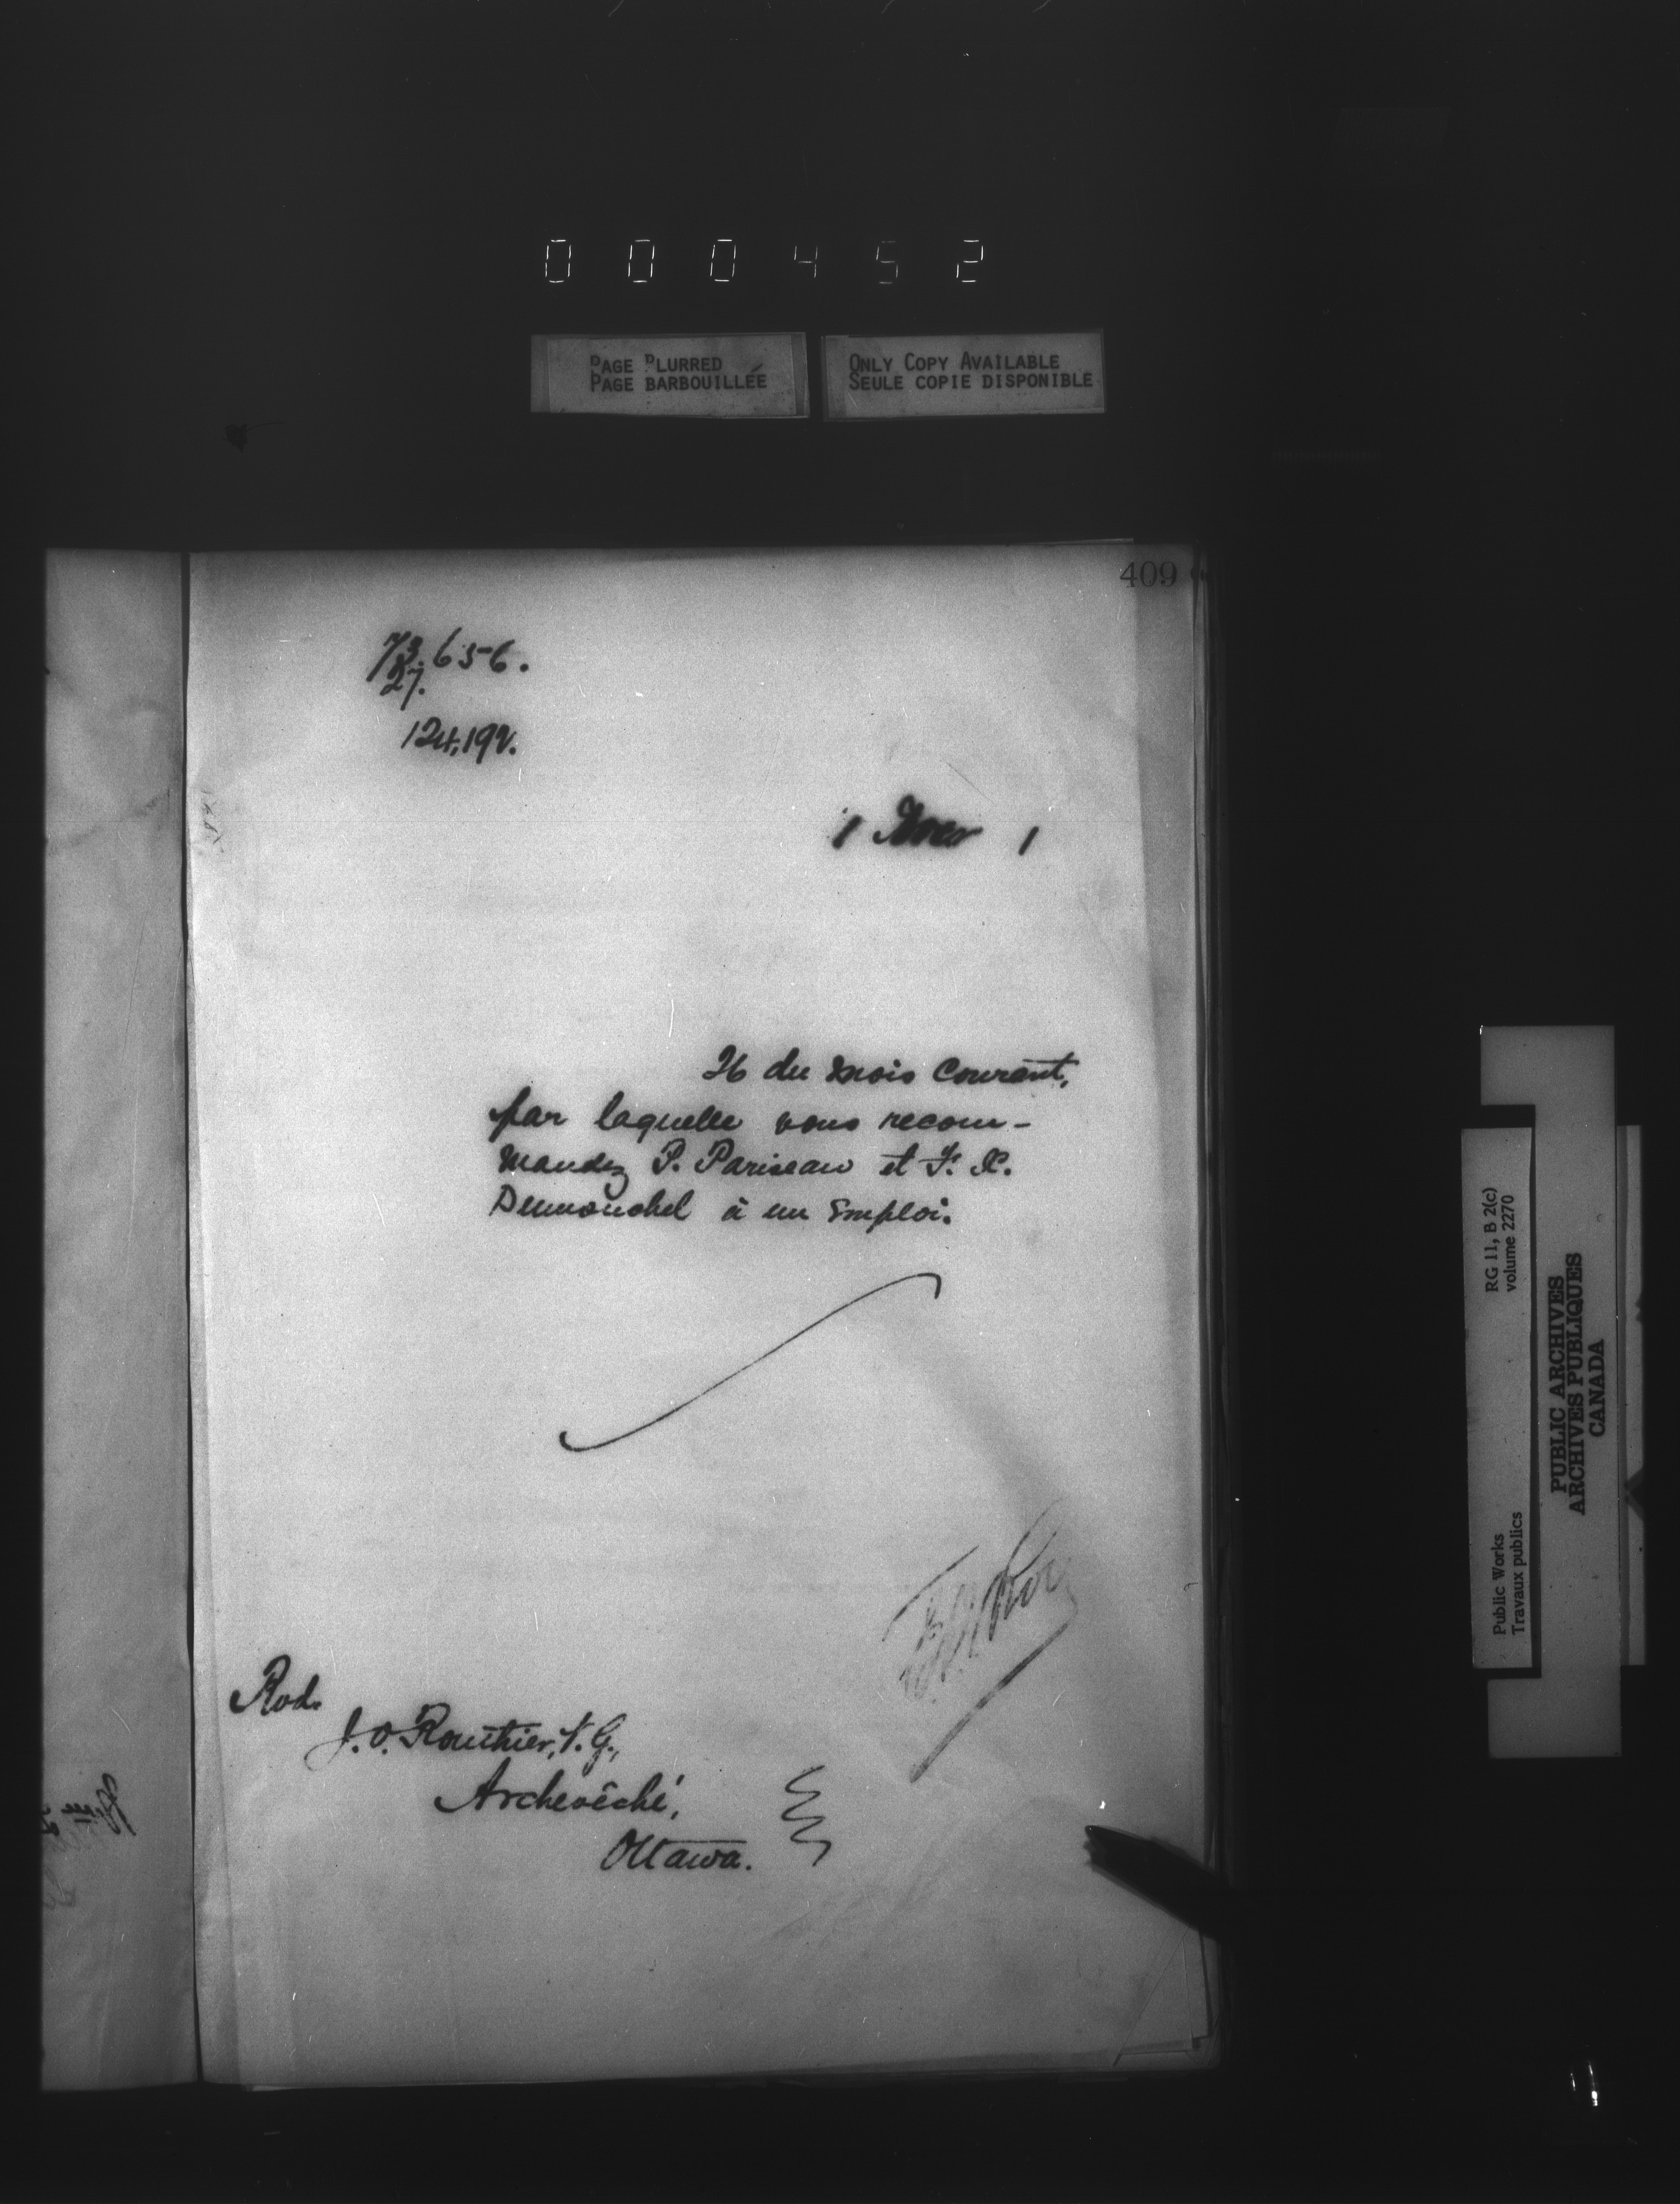 000452
PAGE BLURRED
PAGE BARBOUILLÉE
ONLY COPY AVAILABLE
SEULE COPIE DISPONIBLE
409
73.656.
27.
124,192.
1 1
26 du mois courant,
par laquelle vous recom-
mandez P. Pariseau et F. X.
Dumouchel à un Emploi.
Rvd.
J. O. Routhier, V. G.,
Archevêché,
Ottawa.
RG 11, B 2(c)
volume 2270
Public Works
Travaux publics
PUBLIC ARCHIVES
ARCHIVES PUBLIQUES
CANADA